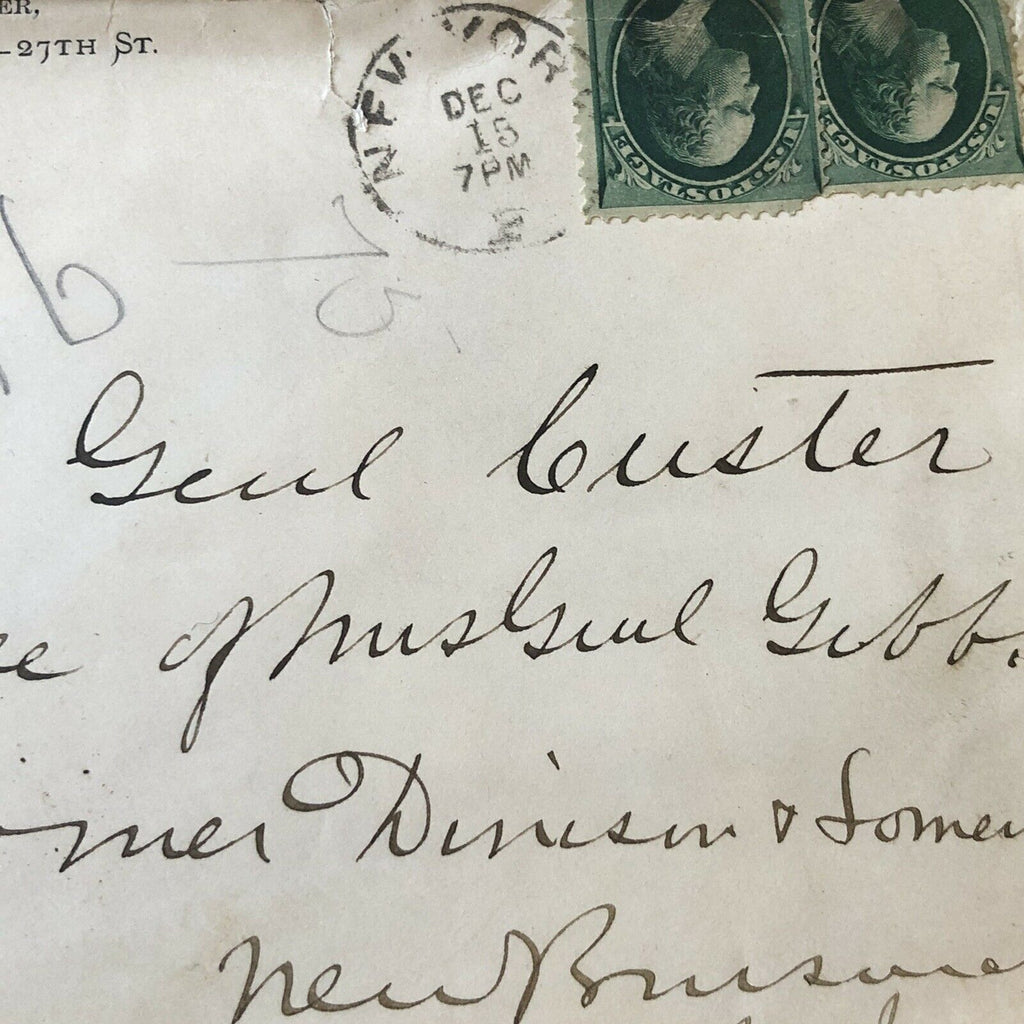 ER,
–27TH ST.
NEW YOR
DEC
15
7PM
U.S. POSTAGE
U.S. POSTAGE
Genl Custer
of Mrs Genl Gibb
Denison & Somer
New Brunsw